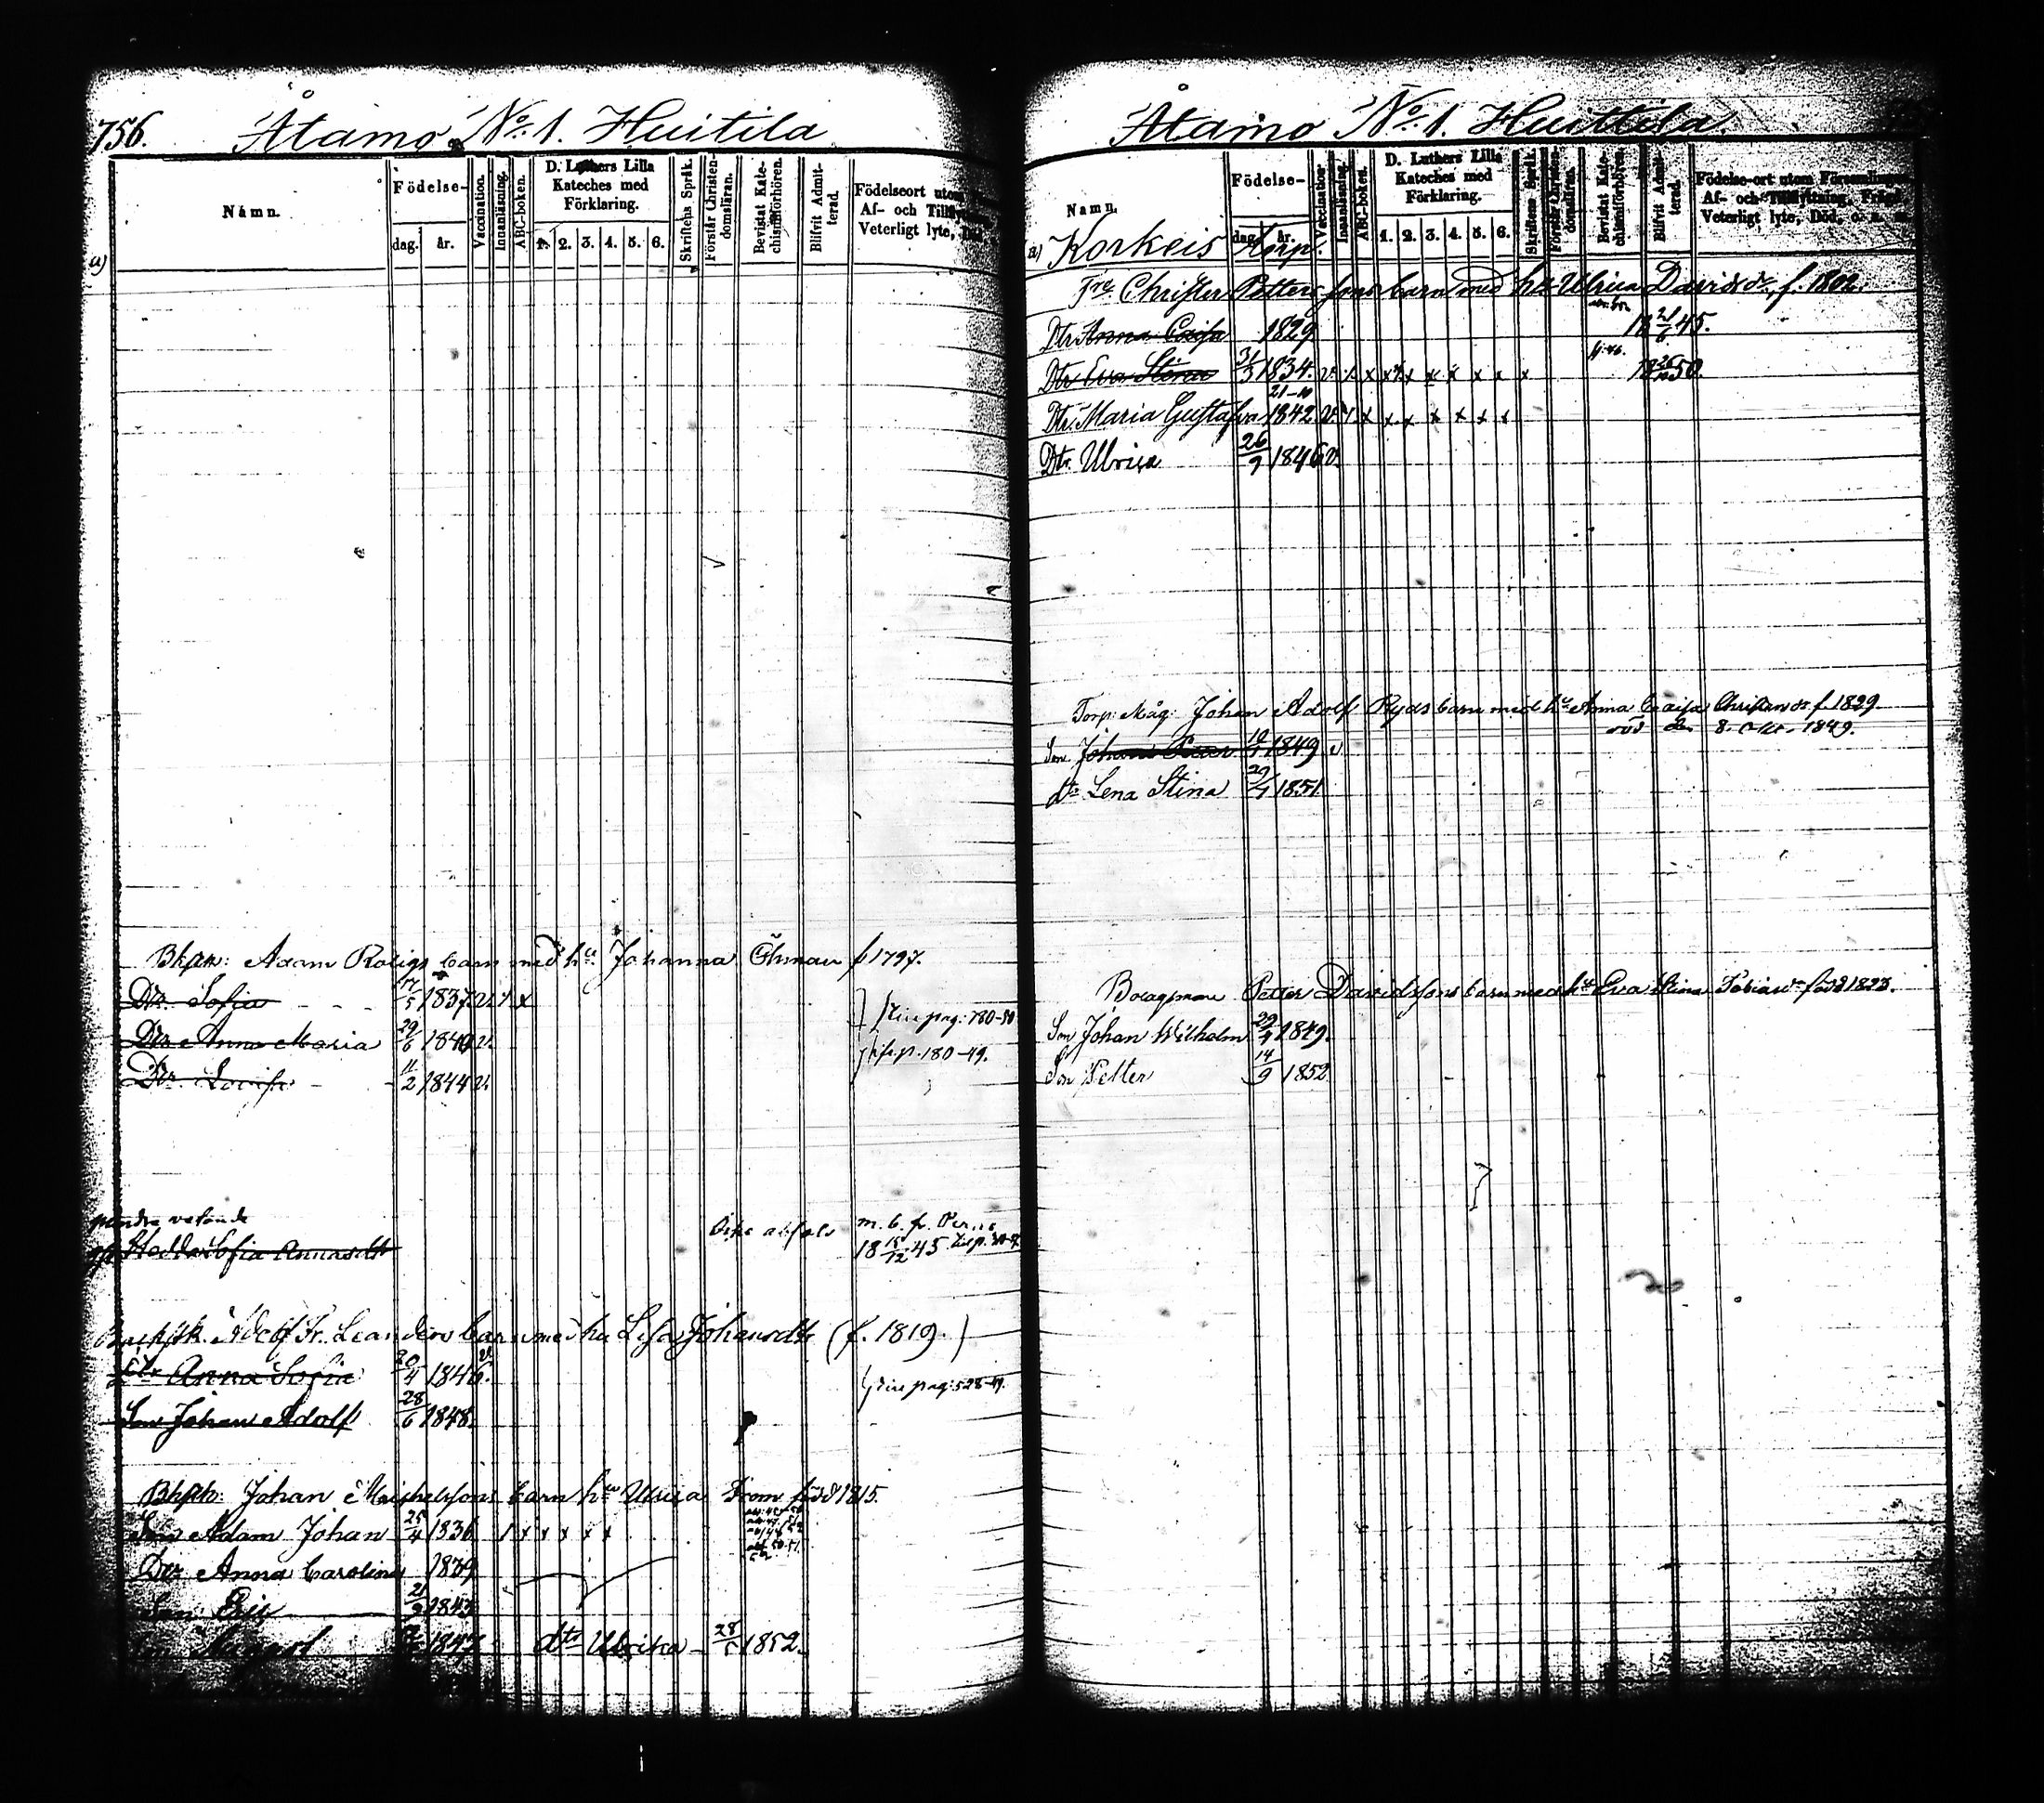 756.
Åtamo No. 1. Huitila
Namn.
Födelse-
dag. år.
Vaccination.
Innanläsning.
ABC-boken.
D. Luthers Lilla
Kateches med
Förklaring.
1. 2. 3. 4. 5. 6.
Skriftens Språk.
Förstår Christen-
domsläran.
Bevistat Kate-
chismiförhören.
Blifvit Admit-
terad.
Födelseort utom
Af- och
Veterligt lyte,
a)
Adam Roligs barn med hu Johanna Öhman f 1797.
Dtr. Sofia 5 1837. v. x
pag: 780-50
Dtr Anna Maria 29/6 1840 v.
p. 180-49.
Dtr Lovisa 11/2 1844 v.
m. b. fr.
Hedda Sofia Annasdtr 18 15/12 45
Adolf Fr. Leanders barn med hu Lisa Johansdtr (f. 1819.)
Dtr Anna Sofia 20/4 1846. v.
pag: 528-49.
Son Johan Adolf 28/6 1848.
Johan Michelssons barn hu Ulrica From född 1815.
Son Adam Johan 25/4 1836 x x x x x
Dtr Anna Carolina 1839
Son Eric 21/2 1843
1847 dtr Ulrika 28/5 1852.
Åtamo No. 1. Huittila.
Namn.
Födelse-
dag. år.
Vaccination.
Innanläsning.
ABC-boken.
D. Luthers Lilla
Kateches med
Förklaring.
1. 2. 3. 4. 5. 6.
Skriftens Språk.
Förstår Christen-
domsläran.
Bevistat Kate-
chismiförhören.
Blifvit Admit-
terad.
Födelse-ort utom Församlingen,
Af- och Tillflyttning, Frägd,
Veterligt lyte, Död, o. s. v.
a) Korkeis Torp.
Christer Petterssons barn med hu Ulrica Davidsdr, f. 1802.
Dtr Anna Caisa 1829 18 21/6 45.
Dtr Eva Stina 31/3 1834. v. x x x x x x x x x 50.
Dtr Maria Gustafva 21-10 1842 v. x x x x x x x
Dtr Ulrica 26/9 1846 v.
Torp: Måg: Johan Adolf Ryds barn med hu Anna Caisa Christersdr f. 1829
död den 8. Oktr. 1849.
Son Johan 1849 v
dtr Lena Stina 29/7 1851.
Bolagsman Petter Davidssons barn med hu Eva Stina Tobiasdr född 1823.
Son Johan Wilhelm 29/4 1849.
Son Petter 14/9 1852